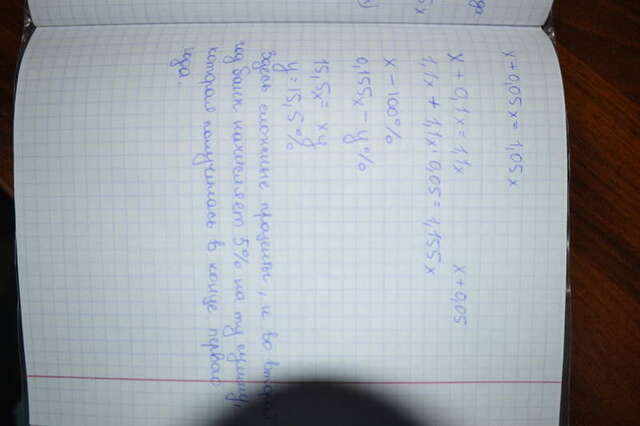 x + 0,05x = 1,05x
x + 0,1x = 1,1x x + 0,05
1,1x + 1,1x · 0,05 = 1,155x
x – 100%
0,155x – y%
15,5x = xy
y = 15,5%
Здесь сложные проценты, и во втором
год банк начисляет 5% на ту сумму,
которая получилась в конце первого
года.